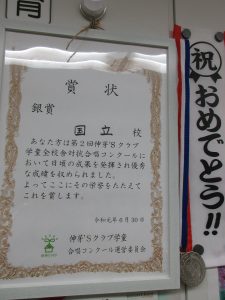 育
賞状
銀賞
国立 校
あなた方は第2回伸芽'Sクラブ
学童全校舎対抗合唱コンクールに
おいて日頃の成果を発揮され優秀
な成績を収められました。
よってここにその栄誉をたたえて
これを賞します。
令和元年6月30日
伸芽'Sクラブ学童
合唱コンクール運営委員会
祝
おめでとう!!